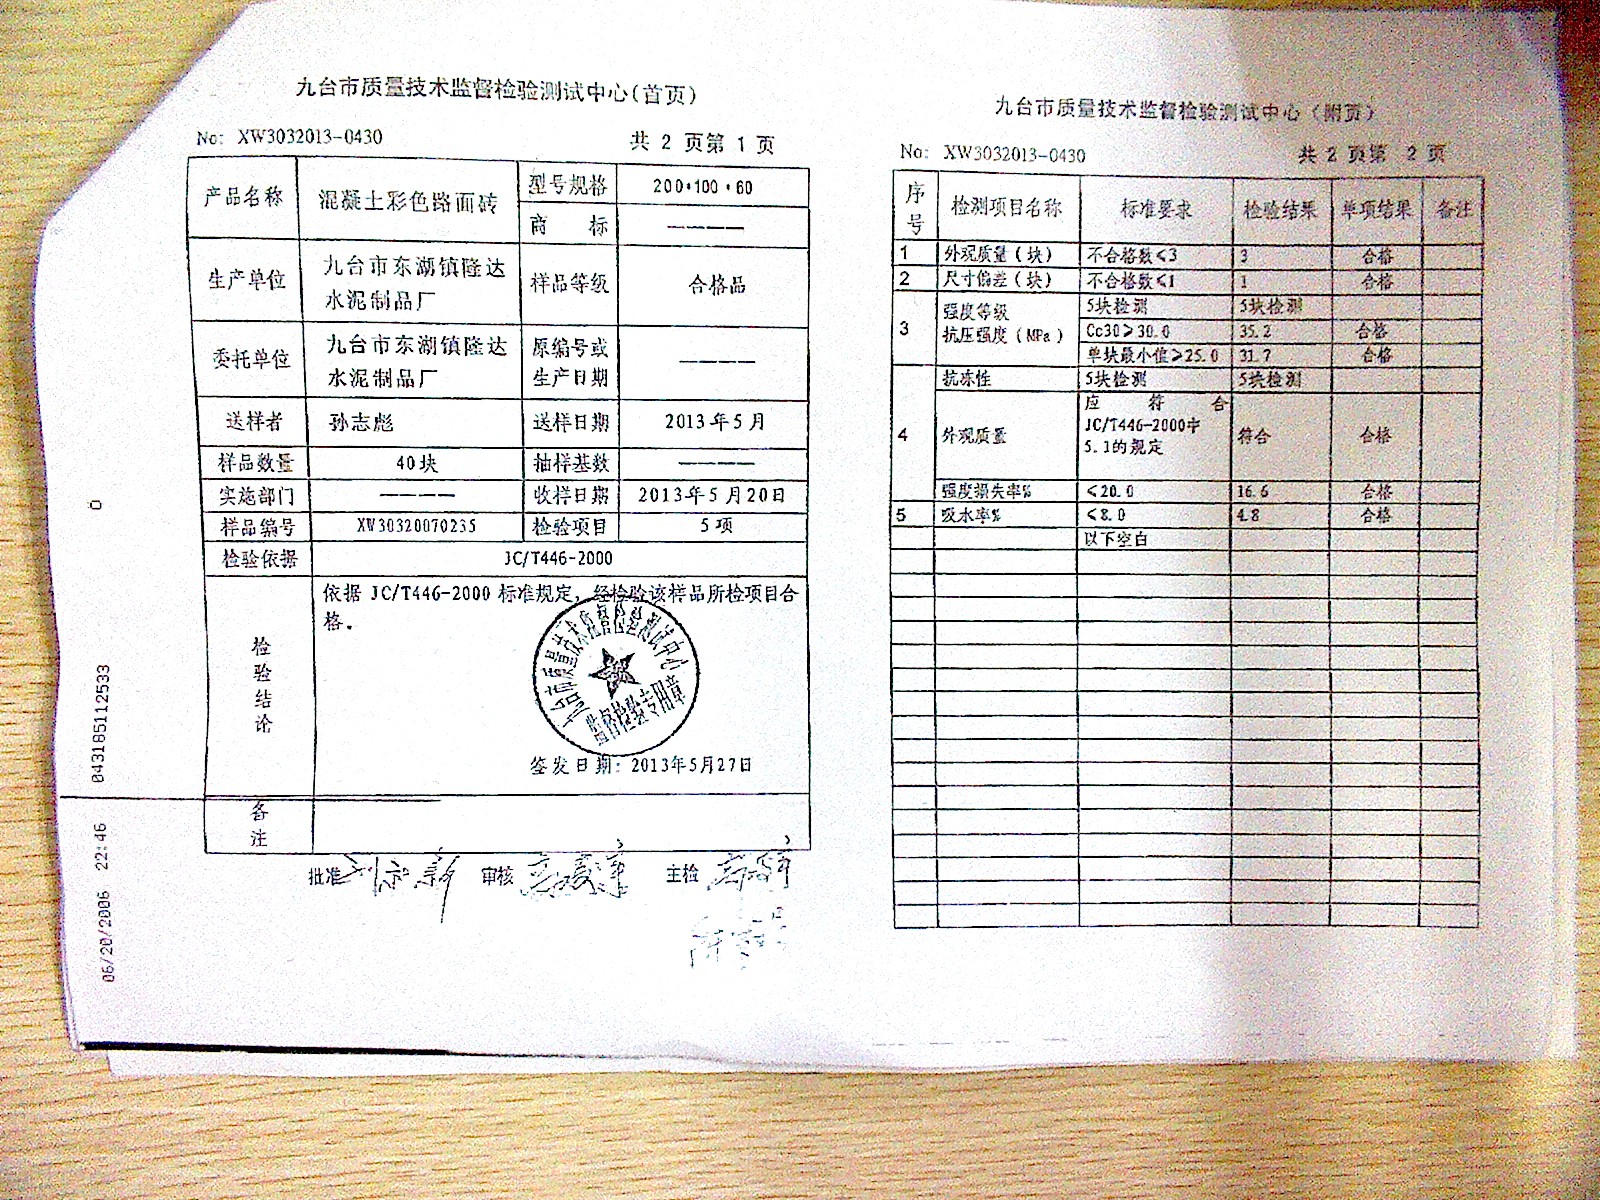 九台市质量技术监督检验测试中心(首页)
No: XW3032013-0430 共 2 页第 1 页
产品名称 混凝土彩色路面砖 型号规格 200*100*60
商 标 ————
生产单位 九台市东湖镇隆达
水泥制品厂 样品等级 合格品
委托单位 九台市东湖镇隆达
水泥制品厂 原编号或
生产日期 ————
送样者 孙志彪 送样日期 2013年5月
样品数量 40块 抽样基数 ————
实施部门 ———— 收样日期 2013年5月20日
样品编号 XW30320070235 检验项目 5项
检验依据 JC/T446-2000
检验结论 依据 JC/T446-2000 标准规定, 经检验该样品所检项目合
格。
九台市质量技术监督检验测试中心
监督检验专用章
签发日期: 2013年5月27日
备注
批准 审核 主检
九台市质量技术监督检验测试中心(附页)
No: XW3032013-0430 共 2 页第 2 页
序号 检测项目名称 标准要求 检验结果 单项结果 备注
1 外观质量(块) 不合格数≤3 3 合格
2 尺寸偏差(块) 不合格数≤1 1 合格
3 强度等级
抗压强度(MPa) 5块检测 5块检测
Cc30≥30.0 35.2 合格
单块最小值≥25.0 31.7 合格
4 抗冻性 5块检测 5块检测
外观质量 应符合
JC/T446-2000中
5.1的规定 符合 合格
强度损失率% ≤20.0 16.6 合格
5 吸水率% ≤8.0 4.8 合格
以下空白
06/20/2006 22:46 043185112533 0